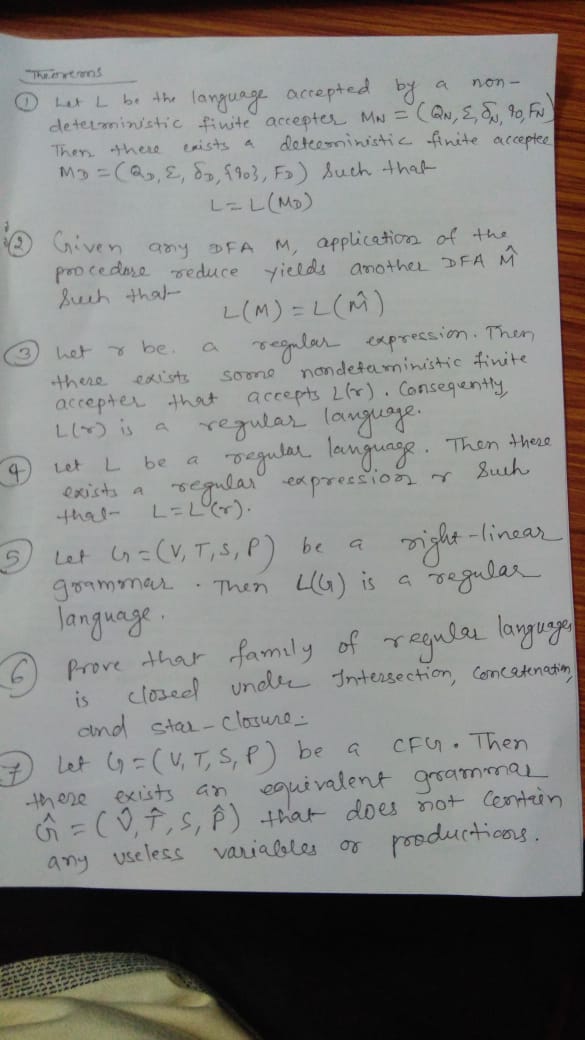 Theorems
① Let L be the language accepted by a non-
deterministic finite accepter MN = (QN, Σ, δN, q0, FN)
Then there exists a deterministic finite accepter
MD = (QD, Σ, δD, {q0}, FD) Such that
L = L(MD)
② Given any DFA M, application of the
procedure reduce yields another DFA M̂
Such that
L(M) = L(M̂)
③ Let r be. a regular expression. Then
there exists some nondeterministic finite
accepter that accepts L(r). Conseqently,
L(r) is a regular language.
④ Let L be a regular language. Then there
exists a regular expression r Such
that L = L(r).
⑤ Let G = (V, T, S, P) be a right-linear
grammar. Then L(G) is a regular
language.
⑥ Prove that family of regular languages
is closed under Intersection, Concatenation,
and star-closure.
⑦ Let G = (V, T, S, P) be a CFG. Then
there exists an equivalent grammar
Ĝ = (V̂, T̂, S, P̂) that does not contain
any useless variables or productions.